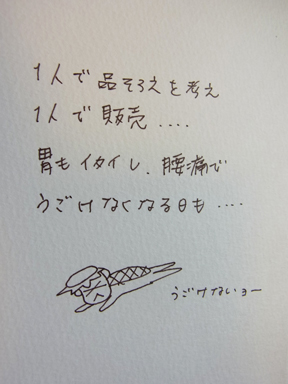 1人で品そろえを考え
1人で販売....
胃もイタイし、腰痛で
うごけなくなる日も....
うごけないョー